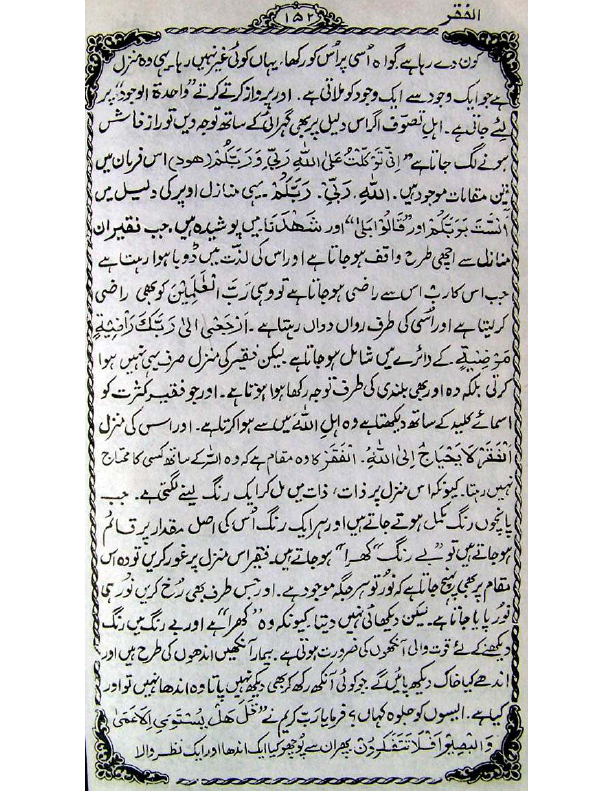 الفقر
۱۵۲
کون دے رہا ہے گواہ اُسی پر اُس کو رکھا، یہاں کوئی غیر نہیں رہا یہی وہ منزل
ہے جو ایک وجود سے ایک وجود کو ملاتی ہے۔ اور پرواز کرتے کرتے "واحدۃ الوجود" پر
لیئے جاتی ہے۔ اہلِ تصوّف اگر اس دلیل پر بھی گہرائی کے ساتھ توجہ دیں تو راز فاش
ہونے لگ جاتا ہے "اِنِّی تَوَکَّلْتُ عَلَی اللّٰہِ رَبِّی وَرَبِّکُمْ (ھود) اس فرمان میں
تین مقامات موجود ہیں۔ اللّٰہِ۔ رَبِّی۔ رَبِّکُمْ۔ یہی منازل اوپر کی دلیل میں
اَلَسْتُ بِرَبِّکُمْ اور "قَالُوْا بَلٰی" اور شَھِدْنَا میں پوشیدہ ہیں، جب فقیران
منازل سے اچھی طرح واقف ہو جاتا ہے اور اس کی لذّت میں ڈوبا ہوا رہتا ہے
جب اس کا رب اس سے راضی ہو جاتا ہے تو وہی رَبّ الْعٰلَمِیْن کو بھی راضی
کر لیتا ہے اور اُسی کی طرف رواں دواں رہتا ہے۔ اِرْجِعِیْ اِلٰی رَبِّکِ رَاضِیَةً
مَّرْضِیَّةً کے دائرے میں شامل ہو جاتا ہے لیکن فقیر کی منزل صرف یہی نہیں ہوا
کرتی بلکہ وہ اور بھی بلندی کی طرف توجہ رکھا ہوا ہوتا ہے۔ اور جو فقیر کثرت کو
اسمائے کلیہ کے ساتھ دیکھتا ہے وہ اہل اللّٰہ میں سے ہوا کرتا ہے۔ اور اس کی منزل
اَلْفَقْرُ لَا یَحْتَاجُ اِلَی اللّٰہِ۔ اَلْفَقْرُ کا وہ مقام ہے کہ وہ اللّٰہ کے ساتھ کسی کا محتاج
نہیں رہتا۔ کیونکہ اس منزل پر ذات، ذات میں مل کر ایک رنگ لینے لگتی ہے۔ جب
پانچوں رنگ مکمل ہوتے جاتے ہیں اور ہر ایک رنگ اُس کی اصل مقدار پر قائم
ہو جاتے ہیں تو "بے رنگ" "کھرا" ہو جاتے ہیں۔ فقیر اس منزل پر غور کریں تو وہ اس
مقام پر بھی پہنچ جاتا ہے کہ نُور تو ہر جگہ موجود ہے۔ اور جس طرف بھی رُخ کریں نُور ہی
نُور پایا جاتا ہے۔ لیکن دیکھائی نہیں دیتا۔ کیونکہ وہ "کھرا" ہے اور بے رنگ میں رنگ
دیکھنے کے لئے قوت والی آنکھوں کی ضرورت ہوتی ہے۔ بیمار آنکھیں اندھوں کی طرح ہیں اور
اندھے کیا خاک دیکھ پائیں گے جو کوئی آنکھ رکھ کر بھی دیکھ نہیں پاتا وہ اندھا نہیں تو اور
کیا ہے۔ ایسوں کو جلوہ کہاں؟ فرمایا ربّ کریم نے "قُلْ ھَلْ یَسْتَوِی الْاَعْمٰی
وَالْبَصِیْرُ اَفَلَا تَتَفَکَّرُوْنَ۔ پھر ان سے پُوچھو کیا ایک اندھا اور ایک نظر والا